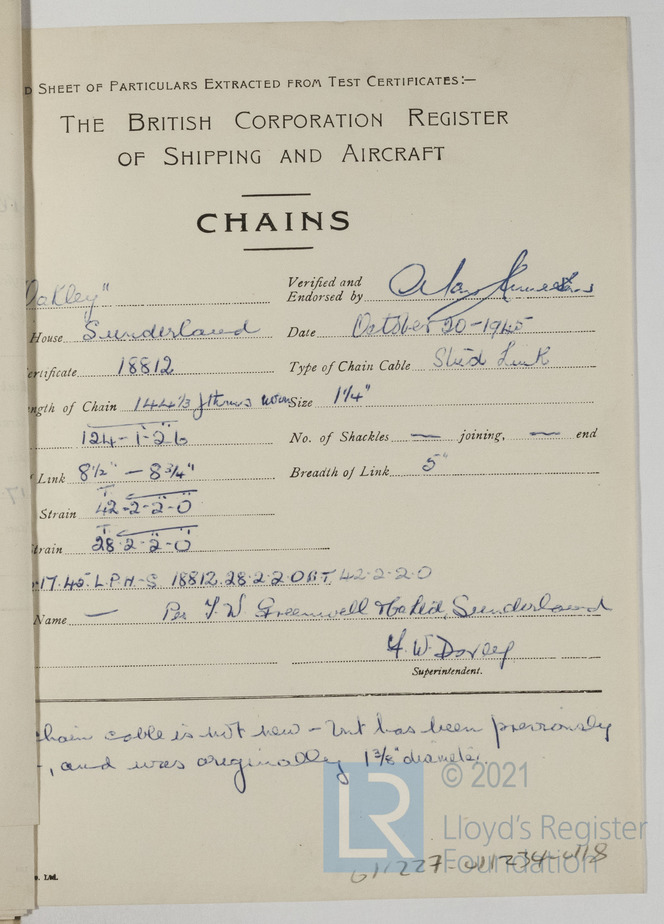 D SHEET OF PARTICULARS EXTRACTED FROM TEST CERTIFICATES:—
THE BRITISH CORPORATION REGISTER
OF SHIPPING AND AIRCRAFT
CHAINS
Oakley"
Verified and
Endorsed by
House Sunderland Date October 20-1945
ertificate 18812 Type of Chain Cable Stud Link
ngth of Chain 144 1/3 fthms worn Size 1 1/4"
124-1-26 No. of Shackles — joining, — end
Link 8 1/2" — 8 3/4" Breadth of Link 5"
Strain 42-2-2-0
train 28-2-2-0
.17.45. L.P.H-S 18812.28.2.2.0 B.T. 42-2-2-0
Name — Per T. W Greenwell & Co Ltd, Sunderland
Superintendent.
chain cable is not new - but has been previously
, and was originally 1 3/8" diameter.
© 2021
LR
Lloyd's Register
Foundation
o. Ltd.